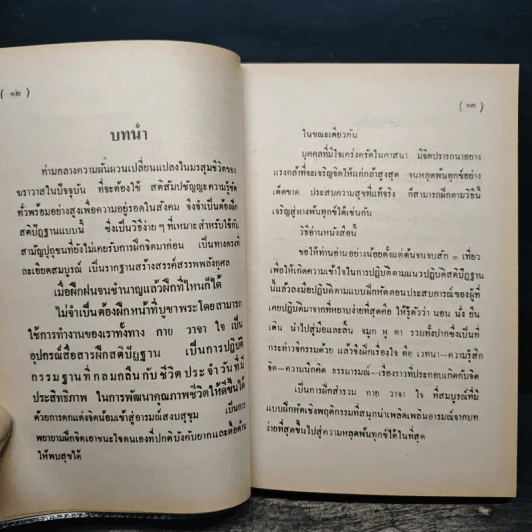 ( ๑๒ )
บทนำ
ท่ามกลางความผันผวนเปลี่ยนแปลงในมรสุมชีวิตของ
ฆราวาสในปัจจุบัน ที่จะต้องใช้ สติสัมปชัญญะความรู้ชัด
ทั่วพร้อมอย่างสูงเพื่อความอยู่รอดในสังคม จึงจำเป็นต้องฝึก
สติปัฏฐานแบบนี้ ซึ่งเป็นวิธีง่าย ๆ ที่เหมาะสำหรับใช้กับ
สามัญปุถุชนที่ยังไม่เคยรับการฝึกจิตมาก่อน เป็นทางตรงที่
ละเอียดสมบูรณ์ เป็นรากฐานสร้างสรรค์สรรพพลังกุศล
เมื่อฝึกฝนจนชำนาญแล้วฝึกที่ไหนก็ได้
ไม่จำเป็นต้องฝึกหน้าที่บูชาพระโดยสามารถ
ใช้การทำงานของเราทั้งทาง กาย วาจา ใจ เป็น
อุปกรณ์สื่อสารฝึกสติปัฏฐาน เป็นการปฏิบัติ
กรรมฐานที่กลมกลืนกับชีวิตประจำวันที่มี
ประสิทธิภาพ ในการพัฒนาคุณภาพชีวิตให้ดีขึ้นได้
ด้วยการตกแต่งจิตน้อมเข้าสู่อารมณ์สงบสุขุม เป็นการ
พยายามฝึกจิตเอาชนะใจตนเองที่ปกติบังคับยากและดื้อด้าน
ให้พบสุขได้
( ๑๓ )
ในขณะเดียวกัน
บุคคลที่มีใจเคร่งครัดในศาสนา มีจิตปรารถนาอย่าง
แรงกล้าที่จะเจริญจิตให้แก่กล้าสูงสุด จนหลุดพ้นทุกข์อย่าง
เด็ดขาด ประสบความสุขที่แท้จริง ก็สามารถฝึกตามวิธีนี้
เจริญสู่ทางพ้นทุกข์ได้เช่นกัน
วิธีอ่านหนังสือนี้
ขอให้ท่านอ่านอย่างน้อยตั้งแต่ต้นจนจบสัก ๓ เที่ยว
เพื่อให้เกิดความเข้าใจในการปฏิบัติตามแนวปฏิบัติสติปัฏฐาน
นี้แล้วลงมือปฏิบัติตามแบบฝึกหัดตอนประสบการณ์ของผู้ที่
เคยปฏิบัติมาจากที่หยาบง่ายที่สุดคือ ให้รู้ตัวว่า นอน นั่ง ยืน
เดิน นำไปสู่มือและลิ้น จมูก หู ตา รวมทั้งปากซึ่งเป็นที่
กระทำวจีกรรมด้วย แล้วจึงฝึกเรื่องใจ คือ เวทนา–ความรู้สึก
จิต–ความนึกคิด ธรรมารมณ์–เรื่องราวที่ประกอบเกิดกับจิต
เป็นการฝึกสำรวม กาย วาจา ใจ ที่สมบูรณ์ที่มี
แบบฝึกหัดเชิงพฤติกรรมที่สนุกน่าเพลิดเพลินอารมณ์จากบท
ง่ายที่สุดขึ้นไปสู่ความหลุดพ้นทุกข์ได้ในที่สุด